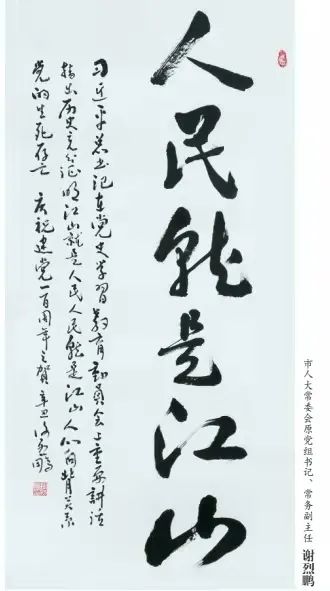 人民就是江山
习近平总书记在党史学习教育动员会上重要讲话
指出历史充分证明江山就是人民人民就是江山人心向背关系
党的生死存亡 庆祝建党一百周年之贺辛丑谢烈鹏
市人大常委会原党组书记、常务副主任 谢烈鹏